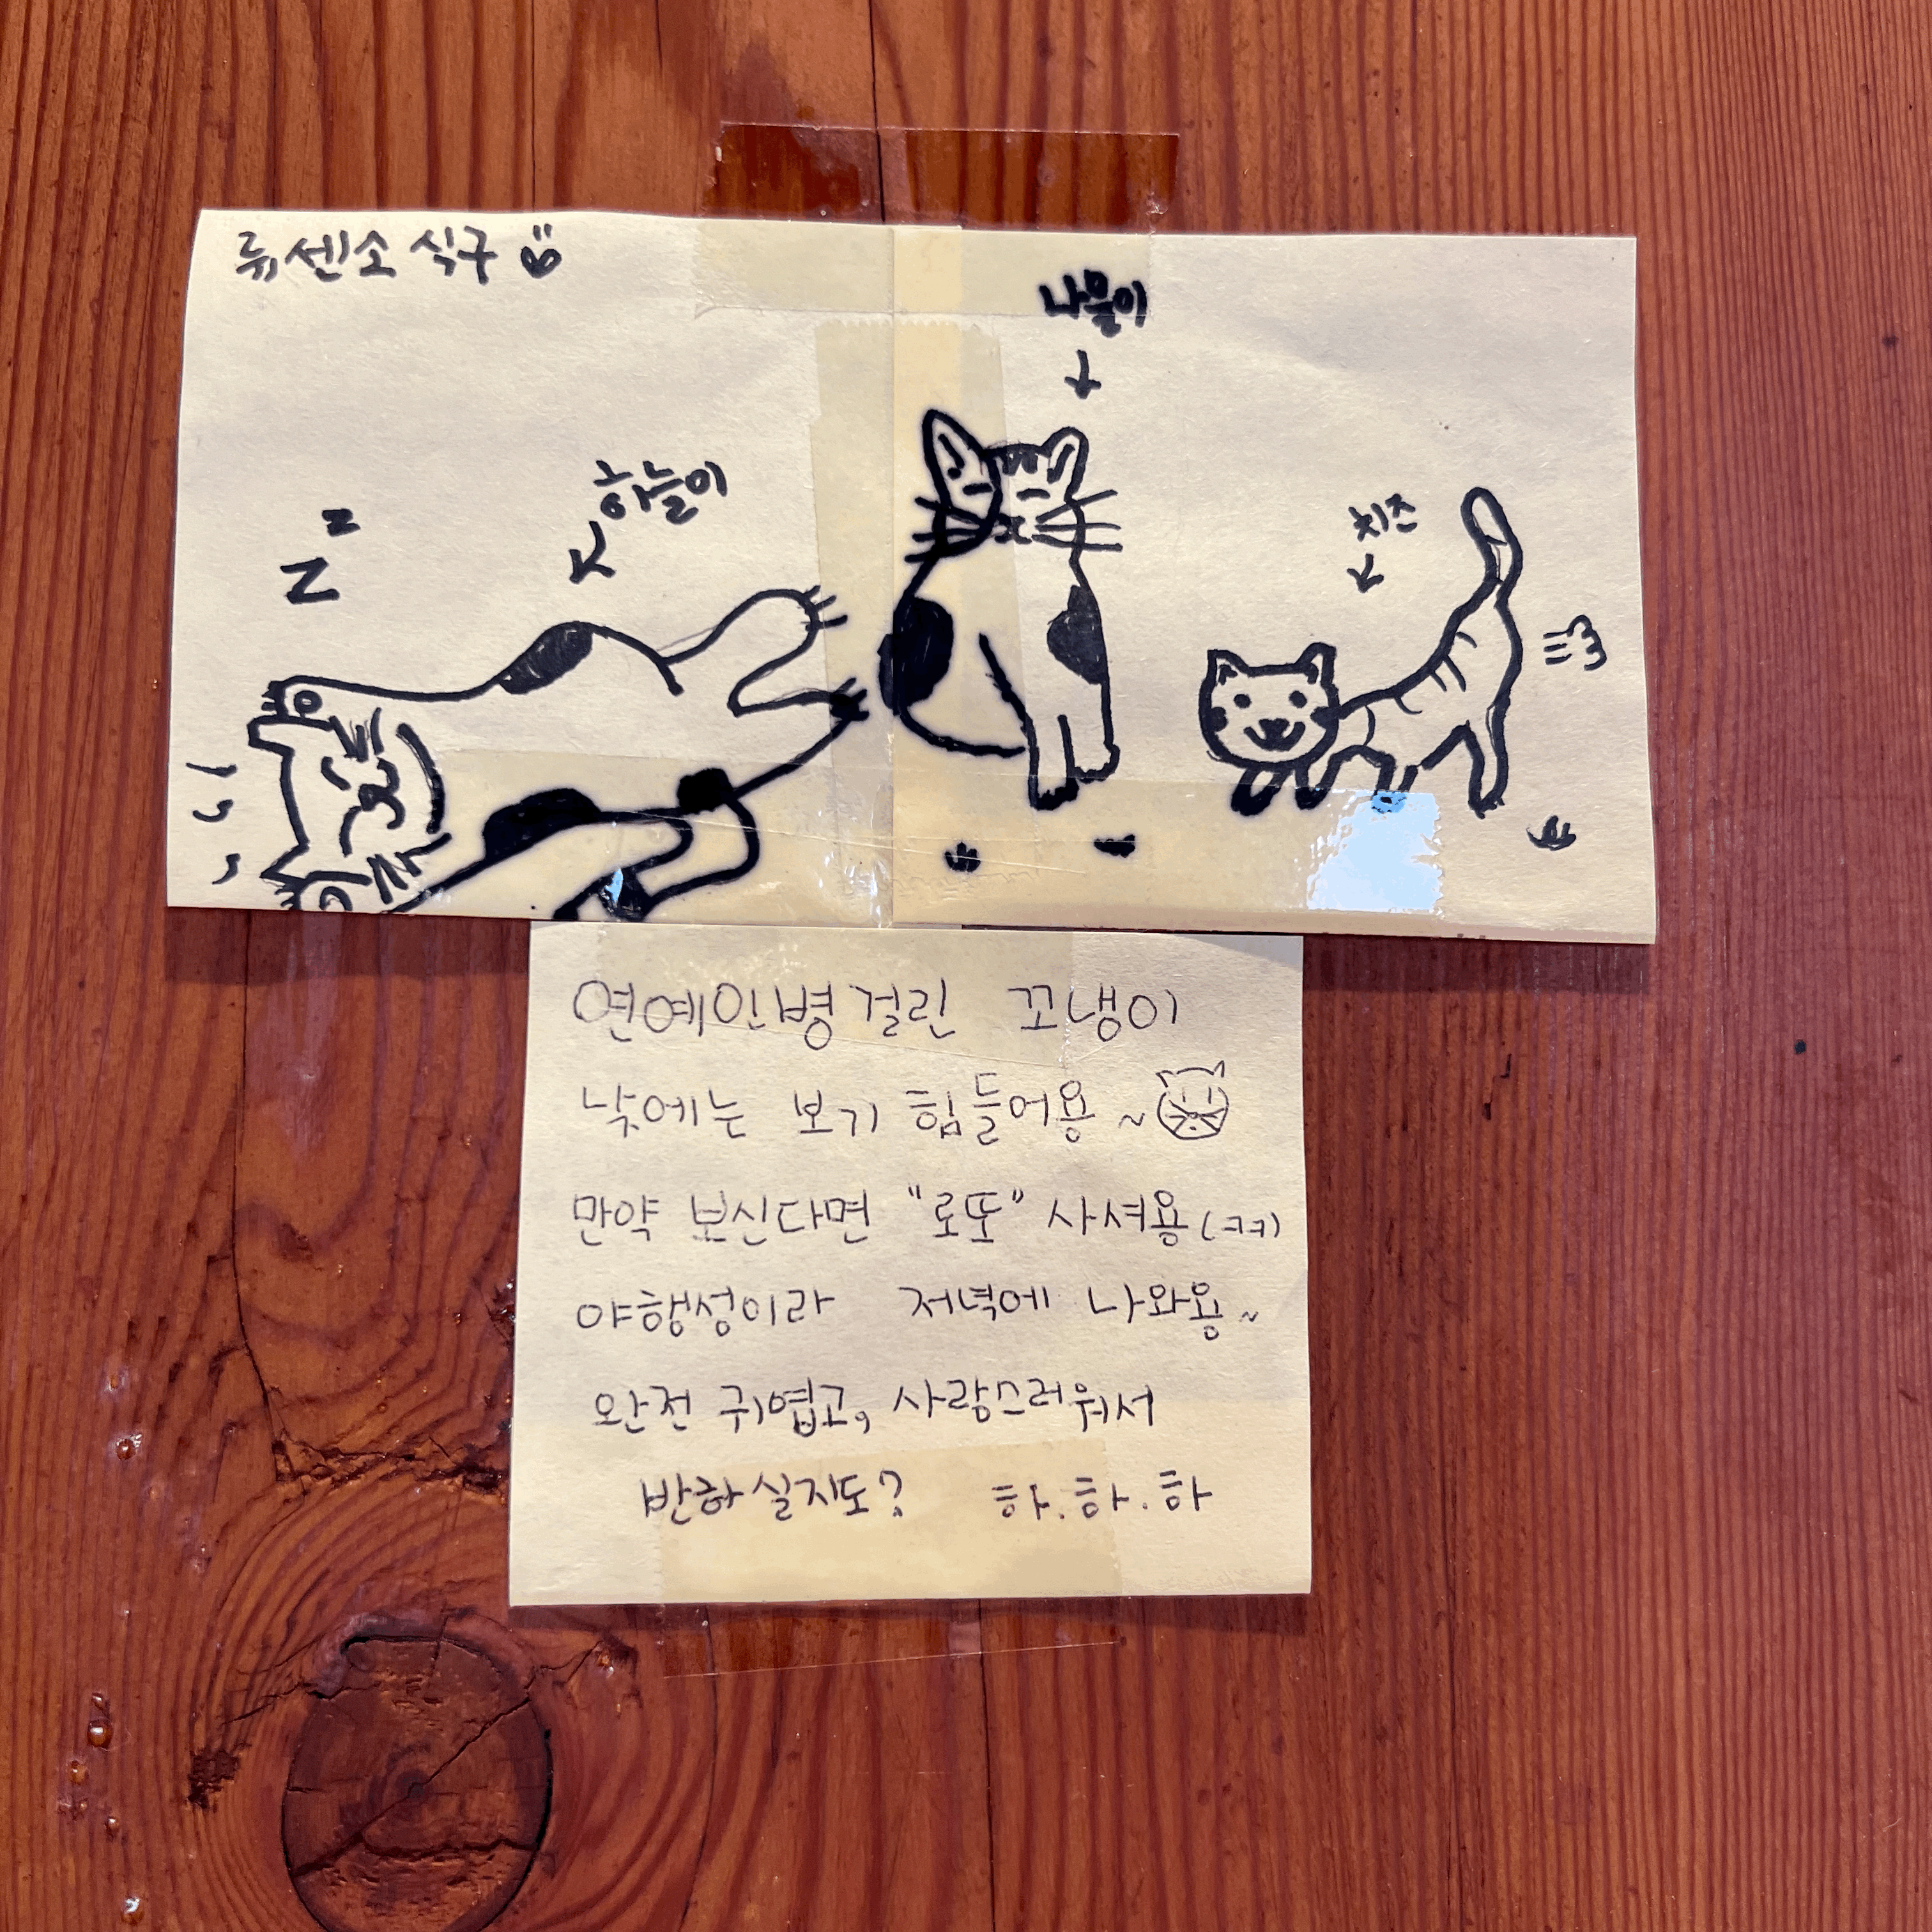 류센소 식구
나물이
하늘이
치즈
z
z
연예인병걸린 꼬냉이
낮에는 보기 힘들어용~
만약 보신다면 "로또" 사셔용(ㅋㅋ)
야행성이라 저녁에 나와용~
완전 귀엽고, 사랑스러워서
반하실지도? 하.하.하